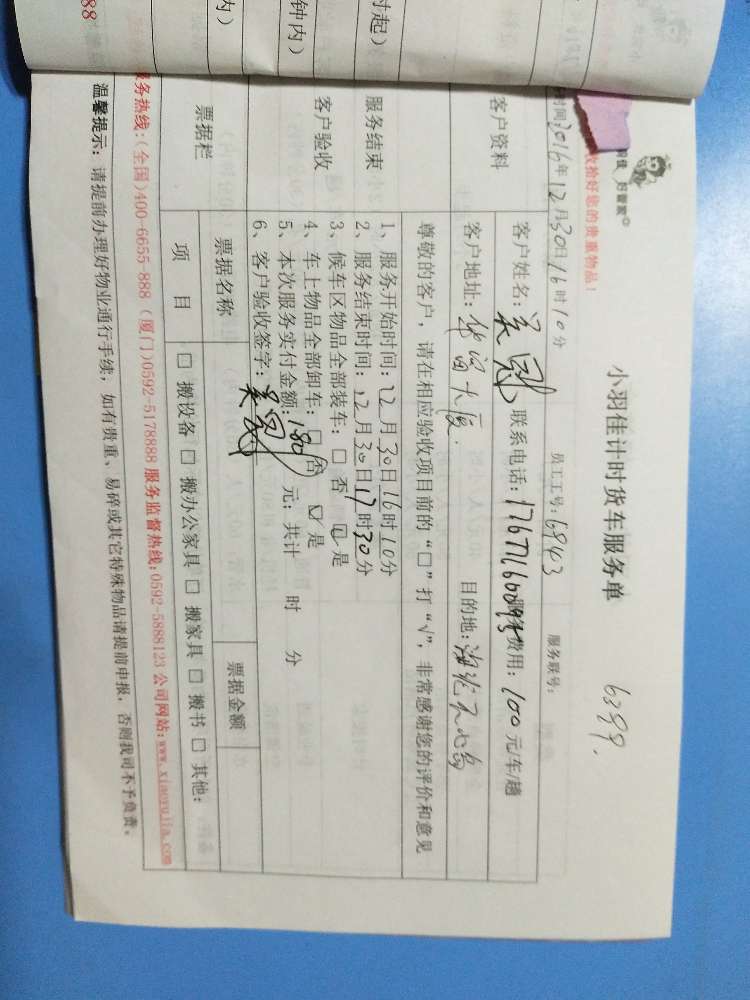 小羽佳计时货车服务单
6399.
员工工号:6943
服务联号:
时间:2016年12月30日16时10分
收拾好您的贵重物品!
客户资料
客户姓名:
联系电话:
服务费用:100元/车/趟
客户地址:华富大厦.
目的地:
尊敬的客户,请在相应验收项目前的“□”打“√”,非常感谢您的评价和意见
服务结束
客户验收
1、服务开始时间:12月30日16时10分
2、服务结束时间:12月30日17时30分
3、候车区物品全部装车:□否 ☑是
4、车上物品全部卸车:□否 ☑是
5、本次服务实付金额:180元;共计 时 分
6、客户验收签字:
票据栏
票据名称
票据金额
项 目
□ 搬设备 □ 搬办公家具 □ 搬家具 □ 搬书 □ 其他:
服务热线:(全国)400-6655-888 (厦门)0592-5178888 服务监督热线:0592-5888123 公司网站:www.xiaoyujia.com
温馨提示:请提前办理好物业通行手续,如有贵重、易碎或其它特殊物品请提前申报,否则我司不予负责。
时起)
钟内)
内)
88